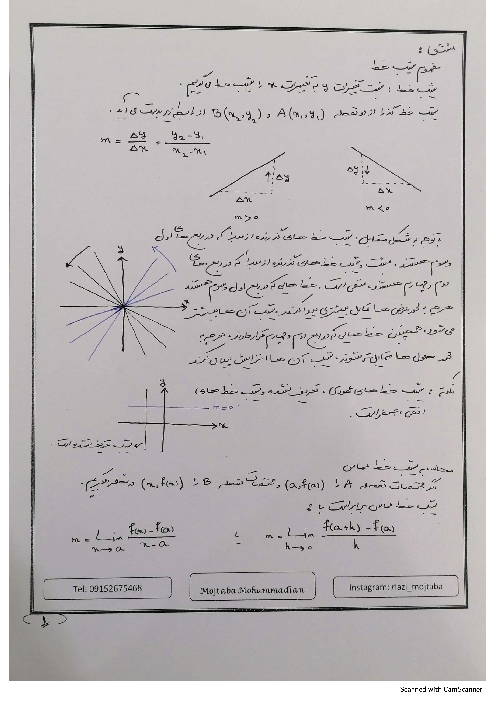 مشتق :
مفهوم شیب خط
شیب خط : نسبت تغییرات y به تغییرات x را شیب خط می گوییم.
شیب خط گذرا از دو نقطه A(x₁,y₁) و B(x₂,y₂) از رابطه زیر بدست می آید.
m = Δy/Δx = y₂-y₁/x₂-x₁
Δy Δx m>0
Δy Δx m<0
با توجه به شکل مقابل، شیب خط های گذرنده از مبدا که در ربع های اول
وسوم هستند، مثبت و شیب خط های گذرنده از مبدا که در ربع های
دوم و چهارم هستند، منفی است. خط هایی که در ربع اول وسوم هستند
هر چه به محور y ها تمایل بیشتری پیدا کنند شیب آن ها بیشتر
می شود. همچنان خط هایی که در ربع دوم و چهارم قرار دارند، هر چه به
y
x
نکته : شیب خط های عمودی، تعریف نشده و شیب خط های
افقی، صفر است.
y
x
شیب تعریف نشده است.
محاسبه شیب خط مماس
اگر مختصات نقطه A را (a,f(a)) و مختصات نقطه B را (x,f(x)) در نظر بگیریم.
شیب خط مماس برابر است با :
m = Lim x→a f(x)-f(a)/x-a یا m = Lim h→0 f(a+h)-f(a)/h
Tel: 09152675468
Mojtaba Mohammadian
Instagram: riazi_mojtaba
1
Scanned with CamScanner